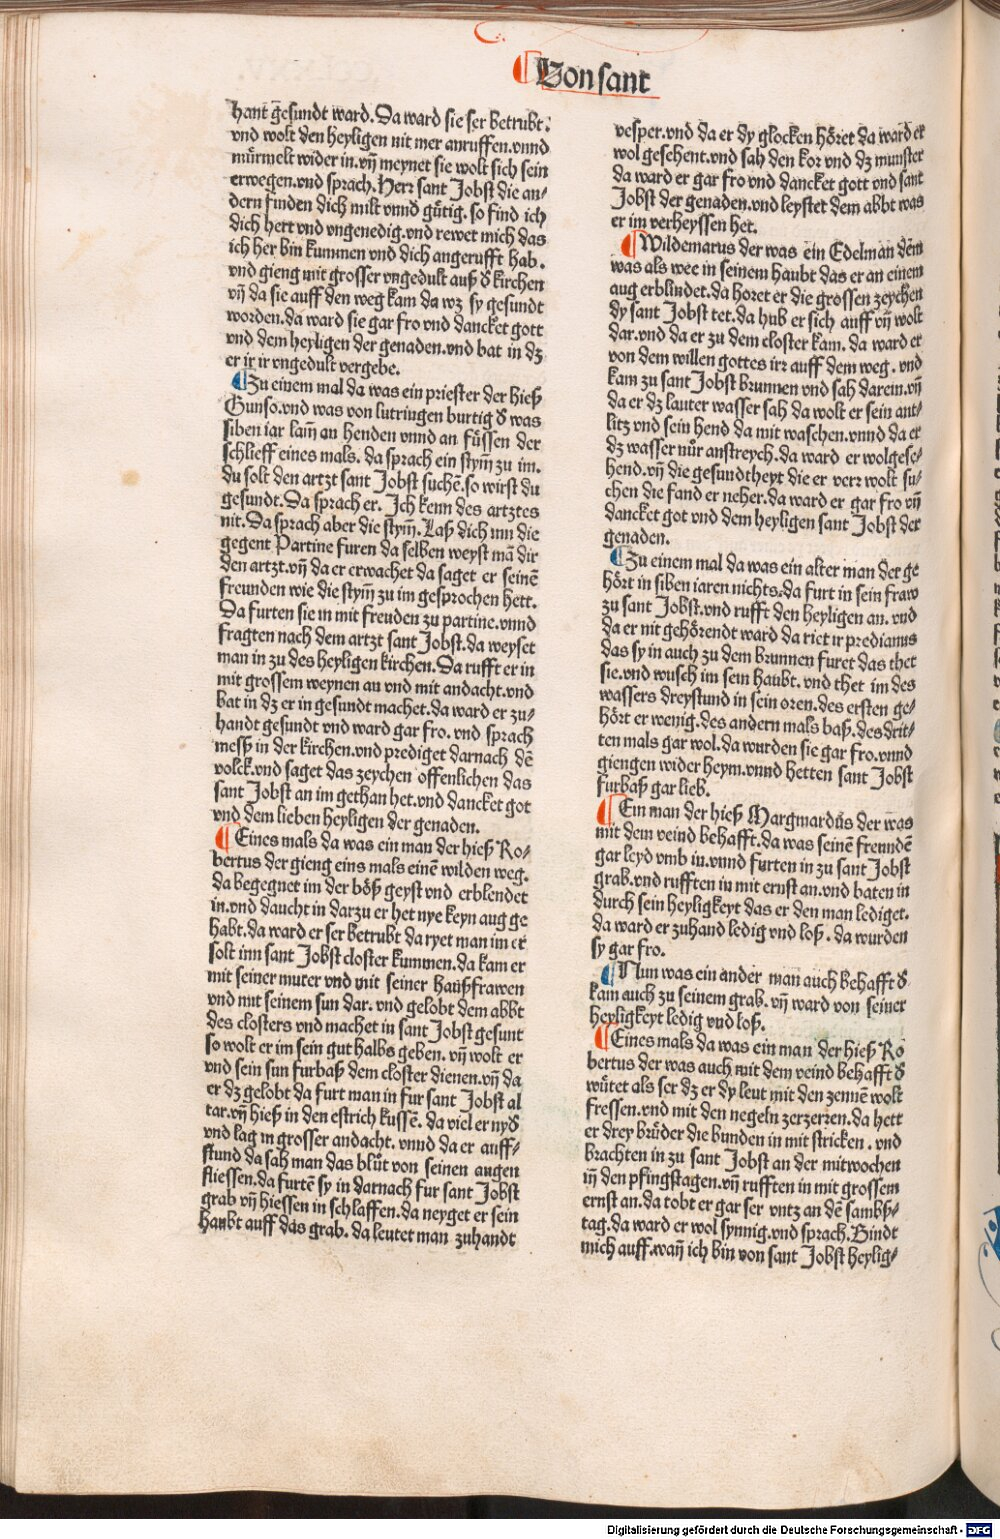 ¶Von sant
hant gesundt ward. Da ward sie ser betrubt.
vnd wolt den heyligen nit mer anruffen.vnnd
mürmelt wider in.vn̄ meynet sie wolt sich sein
erwegen.vnd sprach. Herr sant Jobst die an/
dern finden dich milt vnnd gůtig. so find ich
dich hert vnd vngenedig.vnd rewet mich das
ich her bin kummen vnd dich angerufft hab.
vnd gieng mit grosser vngedult auß d̕ kirchen
vn̄ da sie auff den weg kam da wz sy gesundt
worden.da ward sie gar fro vnd dancket gott
vnd dem heyligen der genaden.vnd bat in dz
er ir ir vngedult vergebe.
¶Zu einem mal da was ein priester der hieß
Gunso.vnd was von lutringen burtig d̕ was
siben iar lam̄ an henden vnnd an füssen der
schlieff eines mals. da sprach ein stym̄ zu im.
du solt den artzt sant Jobst suchē.so wirst du
gesundt. Da sprach er. Ich kenn des artztes
nit. Da sprach aber die stym̄. Laß dich inn die
gegent Partine furen da selben weyst mā dir
den artzt.vn̄ da er erwachet da saget er seinē
freunden wie die stym̄ zu im gesprochen hett.
Da furten sie in mit freuden zu partine.vnnd
fragten nach dem artzt sant Jobst.da weyset
man in zu des heyligen kirchen. Da rufft er in
mit grossem weynen an vnd mit andacht.vnd
bat in dz er in gesundt machet.da ward er zu/
handt gesundt vnd ward gar fro. vnd sprach
messz in der kirchen.vnd prediget darnach dē
volck.vnd saget das zeychen offenlichen das
sant Jobst an im gethan het.vnd dancket got
vnd dem lieben heyligen der genaden.
¶Eines mals da was ein man der hieß Ro/
bertus der gieng eins mals einē wilden weg.
da begegnet im der böß geyst vnd erblendet
in.vnd daucht in darzu er het nye keyn aug ge
habt.da ward er ser betrubt da ryet man im er
solt inn sant Jobst closter kummen.da kam er
mit seiner muter vnd mit seiner haußfrawen
vnd mit seinem sun dar. vnd gelobt dem abbt
des closters vnd machet in sant Jobst gesunt
so wolt er im sein gut halbs geben. vn̄ wolt er
vnd sein sun furbaß dem closter dienen.vn̄ da
er dz gelobt da furt man in fur sant Jobst al
tar.vn̄ hieß in den estrich kussē. da viel er nyd̕
vnd lag in grosser andacht. vnnd da er auff/
stund da sah man das blůt von seinen augen
fliessen.da furtē sy in darnach fur sant Jobst
grab vn̄ hiessen in schlaffen.da neyget er sein
haubt auff das grab. da leutet man zuhandt
vesper.vnd da er dy glocken höret da ward er
wol gesehent.vnd sah den kor vnd dz munster
da ward er gar fro vnd dancket gott vnd sant
Jobst der genaden.vnd leystet dem abbt was
er im verheyssen het.
¶Wildemarus der was ein Edelman dem
was als wee in seinem haubt das er an einem
aug erblindet.da horet er die grossen zeychen
dy sant Jobst tet.da hub er sich auff vn̄ wolt
dar.vnd da er zu dem closter kam. da ward er
von dem willen gottes irr auff dem weg. vnd
kam zu sant Jobst brunnen vnd sah darein.vn̄
da er dz lauter wasser sah da wolt er sein ant/
litz vnd sein hend da mit waschen.vnnd da er
dz wasser nůr anstreych.da ward er wolgese/
hend.vn̄ die gesundtheyt die er verr wolt su/
chen die fand er neher.da ward er gar fro vn̄
dancket got vnd dem heyligen sant Jobst der
genaden.
¶Zu einem mal da was ein alter man der ge
hört in siben iaren nichts.da furt in sein fraw
zu sant Jobst.vnd rufft den heyligen an. vnd
da er nit gehörendt ward da riet ir predianus
das sy in auch zu dem brunnen furet das thet
sie.vnd wusch im sein haubt. vnd thet im des
wassers dreystund in sein oren.des ersten ge/
hört er wenig.des andern mals baß.des drit/
ten mals gar wol.da wurden sie gar fro.vnnd
giengen wider heym.vnnd hetten sant Jobst
furbaß gar lieb.
¶Ein man der hieß Margmardůs der was
mit dem veind behafft.da was seinē freundē
gar leyd vmb in.vnnd furten in zu sant Jobst
grab.vnd rufften in mit ernst an.vnd baten in
durch sein heyligkeyt das er den man lediget.
da ward er zuhand ledig vnd loß. da wurden
sy gar fro.
¶Nun was ein ander man auch behafft d̕
kam auch zu seinem grab. vn̄ ward von seiner
heyligkeyt ledig vnd loß.
¶Eines mals da was ein man der hieß Ro
bertus der was auch mit dem veind behafft d̕
wütet als ser dz er dy leut mit den zennē wolt
fressen.vnd mit den negeln zerzerren.da hett
er drey brüder die bunden in mit stricken. vnd
brachten in zu sant Jobst an der mitwochen
in̄ den pfingstagen.vn̄ rufften in mit grossem
ernst an.da tobt er gar ser vntz an dē sambß/
tag.da ward er wol synnig.vnd sprach. Bindt
mich auff.wan̄ ich bin von sant Jobst heylig/
Digitalisierung gefördert durch die Deutsche Forschungsgemeinschaft - DFG